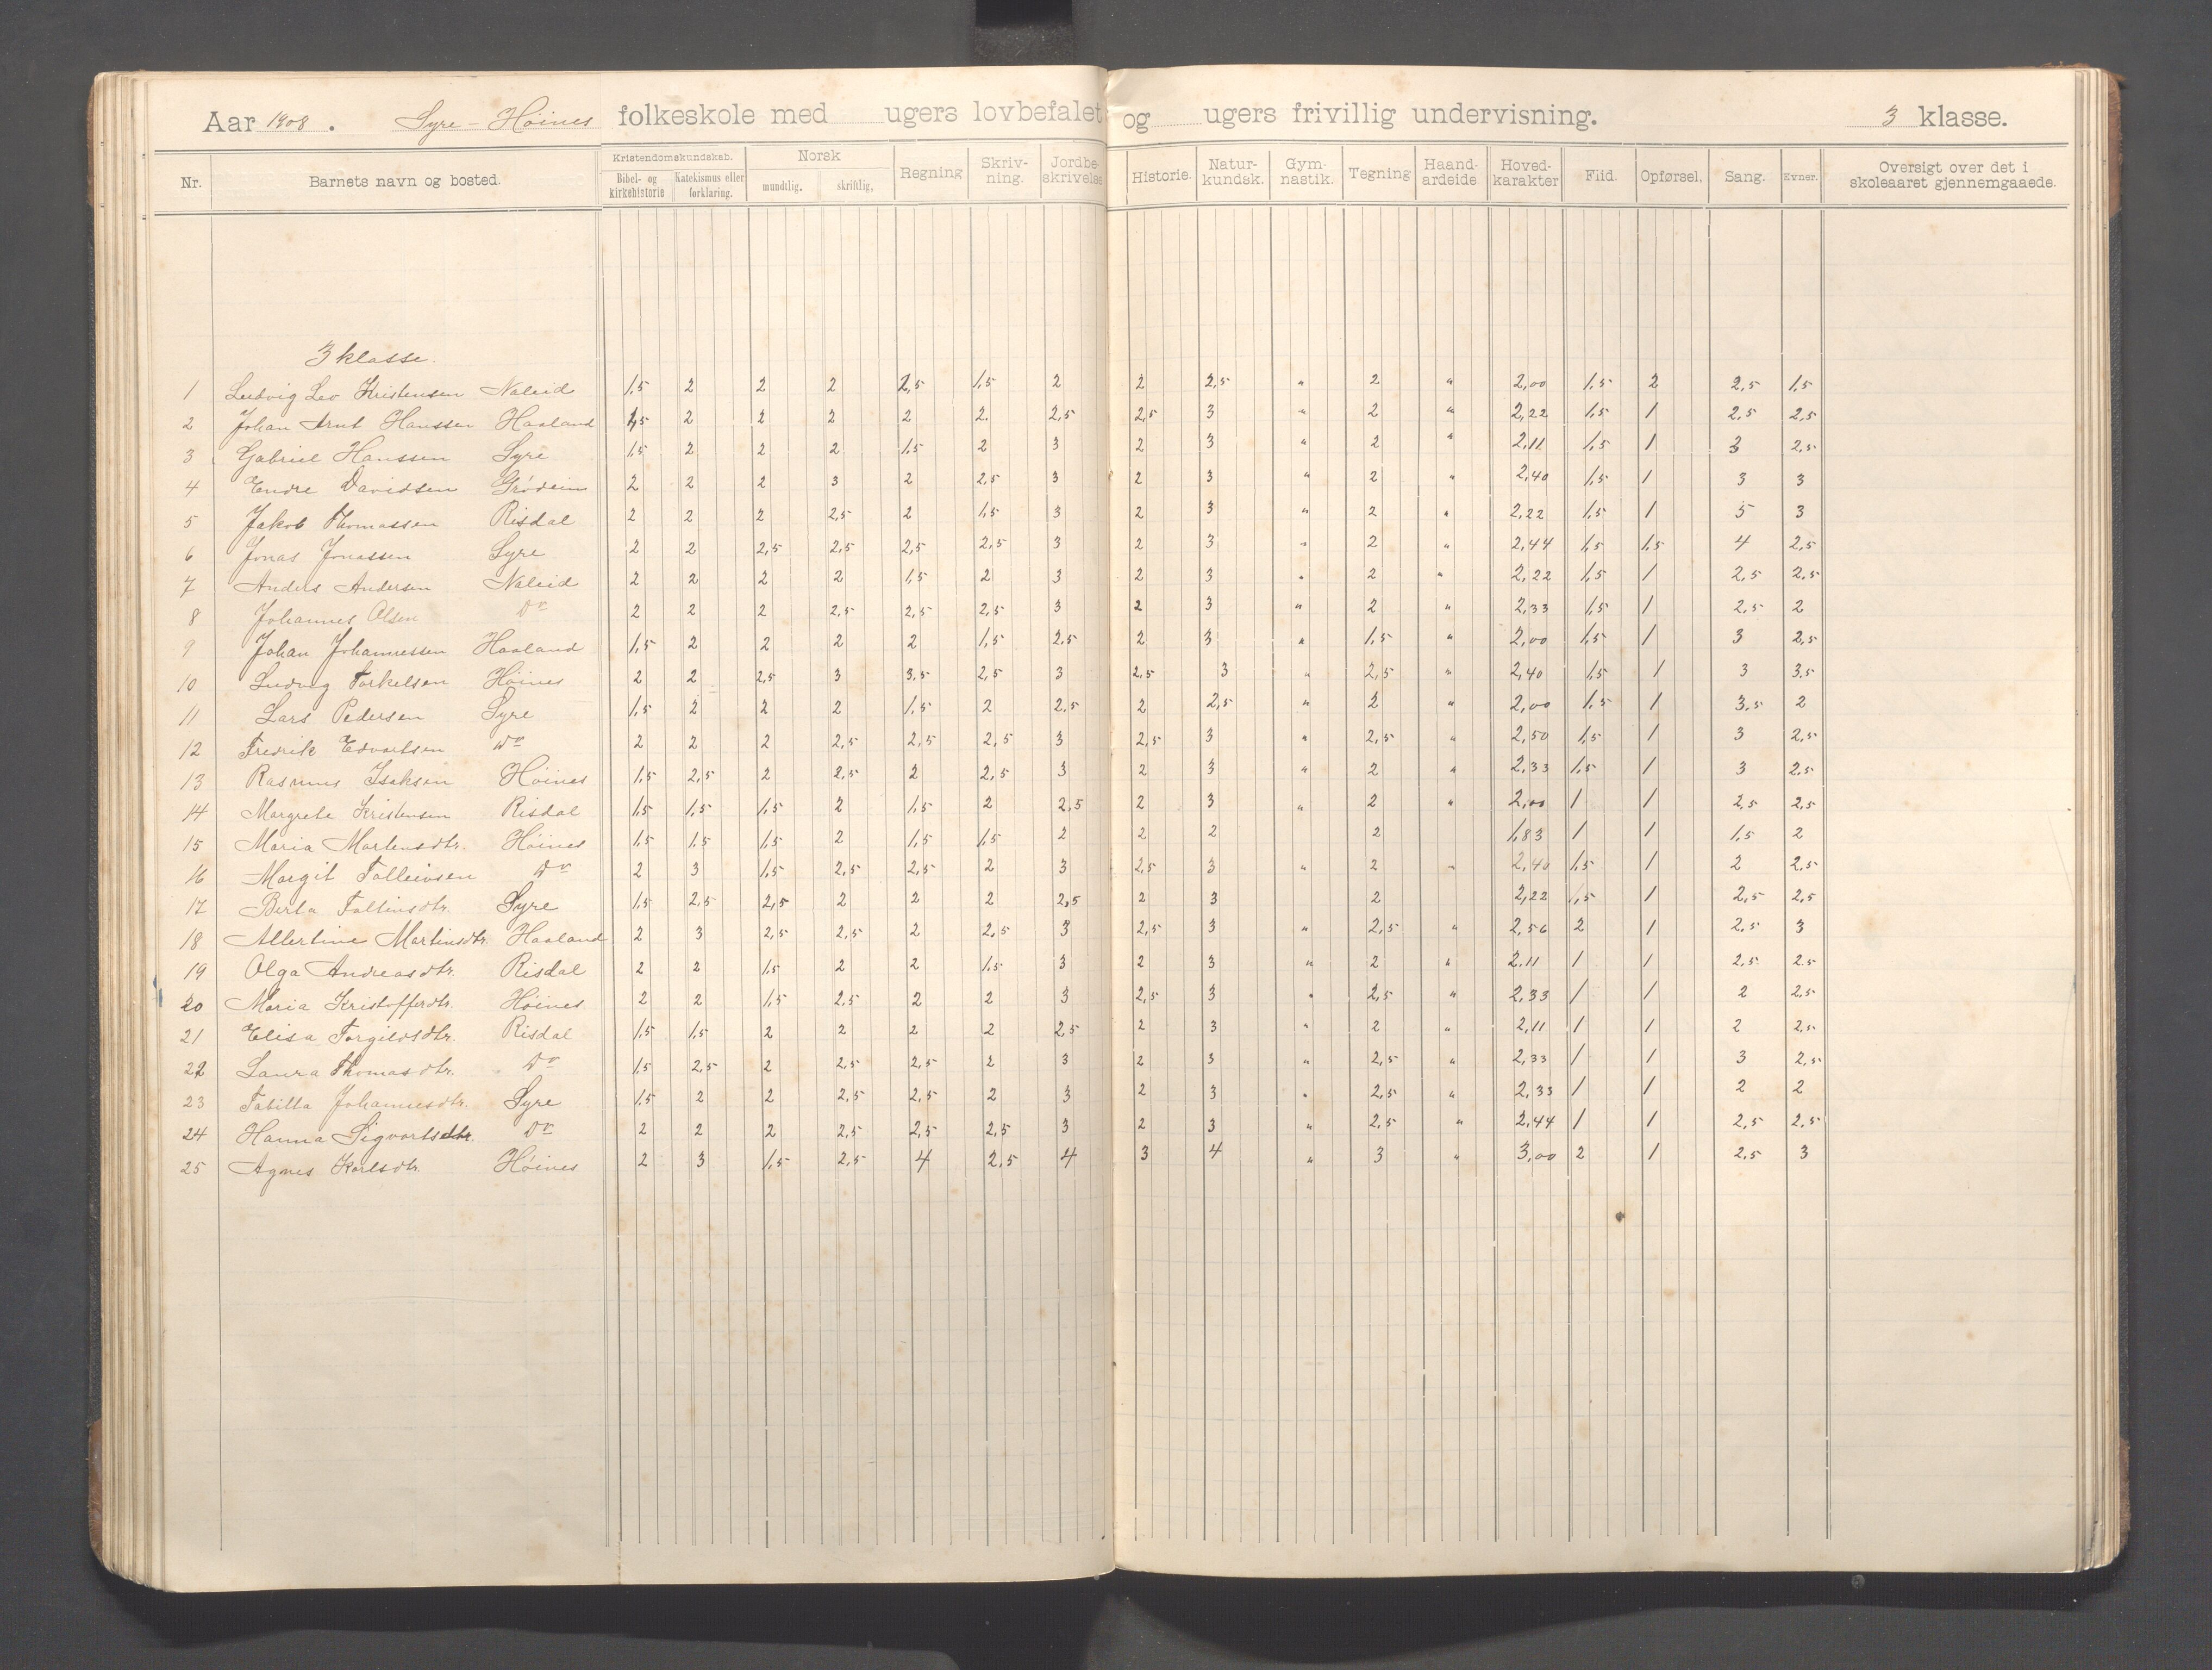 Aar 1908. Syre - Höines folkeskole med ugers lovbefalet og ugers frivillig undervisning. 3 klasse.
Nr. Barnets navn og bosted. Kristendomskundskab. Bibel- og kirkehistorie Katekismus eller forklaring. Norsk mundtlig. skriftlig, Regning Skriv-ning. Jordbe-skrivelse Historie. Natur-kundsk. Gym-nastik. Tegning Haand-ardeide Hoved-karakter Flid. Opførsel. Sang. Evner. Oversigt over det i skoleaaret gjennemgaaede.
3 klasse.
1 Ludvig Lev Kristensen Naleid 1,5 2 2 2 2,5 1,5 2 2 2,5 " 2 " 2,00 1,5 2 2,5 1,5
2 Johan Arnt Hanssen Haaland 1,5 2 2 2 2 2. 2,5 2,5 3 " 2 " 2,22 1,5 1 2,5 2,5
3 Gabriel Hanssen Syre 1,5 2 2 2 1,5 2 3 2 3 " 2 " 2,11 1,5 1 3 2,5
4 Endre Davidsen Grödeim 2 2 2 3 2 2,5 3 2 3 " 2 " 2,40 1,5 1 3 3
5 Jakob Thomassen Risdal 2 2 2 2,5 2 1,5 3 2 3 " 2 " 2,22 1,5 1 5 3
6 Jonas Jonassen Syre 2 2 2,5 2,5 2,5 2,5 3 2 3 " 2 " 2,44 1,5 1,5 4 2,5
7 Anders Andersen Naleid 2 2 2 2 1,5 2 3 2 3 " 2 " 2,22 1,5 1 2,5 2,5
8 Johannes Olsen Do 2 2 2 2,5 2,5 2,5 3 2 3 " 2 " 2,33 1,5 1 2,5 2
9 Johan Johannessen Haaland 1,5 2 2 2 2 1,5 2,5 2 3 " 1,5 " 2,00 1,5 1 3 2,5
10 Ludvig Torkelsen Höines 2 2 2,5 3 3,5 2,5 3 2,5 3 " 2,5 " 2,40 1,5 1 3 3,5
11 Lars Pedersen Syre 1,5 2 2 2 1,5 2 2,5 2 2,5 " 2 " 2,00 1,5 1 3,5 2
12 Fredrik Edvartsen Do 2 2 2 2,5 2,5 2,5 3 2,5 3 " 2,5 " 2,50 1,5 1 3 2,5
13 Rasmus Isaksen Höines 1,5 2,5 2 2,5 2 2,5 3 2 3 " 2 " 2,33 1,5 1 3 2,5
14 Margrete Kristensen Risdal 1,5 1,5 1,5 2 1,5 2 2,5 2 3 " 2 " 2,00 1 1 2,5 2,5
15 Maria Martensdtr. Höines 1,5 1,5 1,5 2 1,5 1,5 2 2 2 2 1,83 1 1 1,5 2
16 Margit Tolleivsen Do 2 3 1,5 2,5 2,5 2 3 2,5 3 " 2 " 2,40 1,5 1 2 2,5
17 Berta Toltinsdtr. Syre 1,5 2,5 2,5 2 2 2 2,5 2 3 2 2,22 1,5 1 2,5 2,5
18 Albertine Martinsdtr. Haaland 2 3 2,5 2,5 2 2,5 3 2,5 3 " 2,5 " 2,56 2 1 2,5 3
19 Olga Andreasdtr. Risdal 2 2 1,5 2 2 1,5 3 2 3 " 2 " 2.11 1 1 2,5 2.5
20 Maria Kristofferdtr. Höines 2 2 1,5 2,5 2 2 3 2,5 3 " 2,5 " 2,33 1 1 2 2,5
21 Elisa Torgilsdtr. Risdal 1,5 1,5 2 2 2 2 2,5 2 3 " 2 " 2,11 1 1 2 2,5
22 Laura Thomasdtr. Do 1,5 2,5 2 2,5 2,5 2 3 2 3 " 2,5 " 2,33 1 1 3 2,5
23 Tabitta Johannesdtr. Syre 1,5 2 2 2,5 2,5 2 3 2 3 " 2,5 " 2,33 1 1 2 2
24 Hanna Sigvartsdtr. Do 2 2 2 2,5 2,5 2,5 3 2 3 " 2,5 " 2,44 1 1 2,5 2,5
25 Agnes Karlsdtr. Höines 2 3 1,5 2,5 4 2,5 4 3 4 " 3 " 3,00 2 1 2,5 3